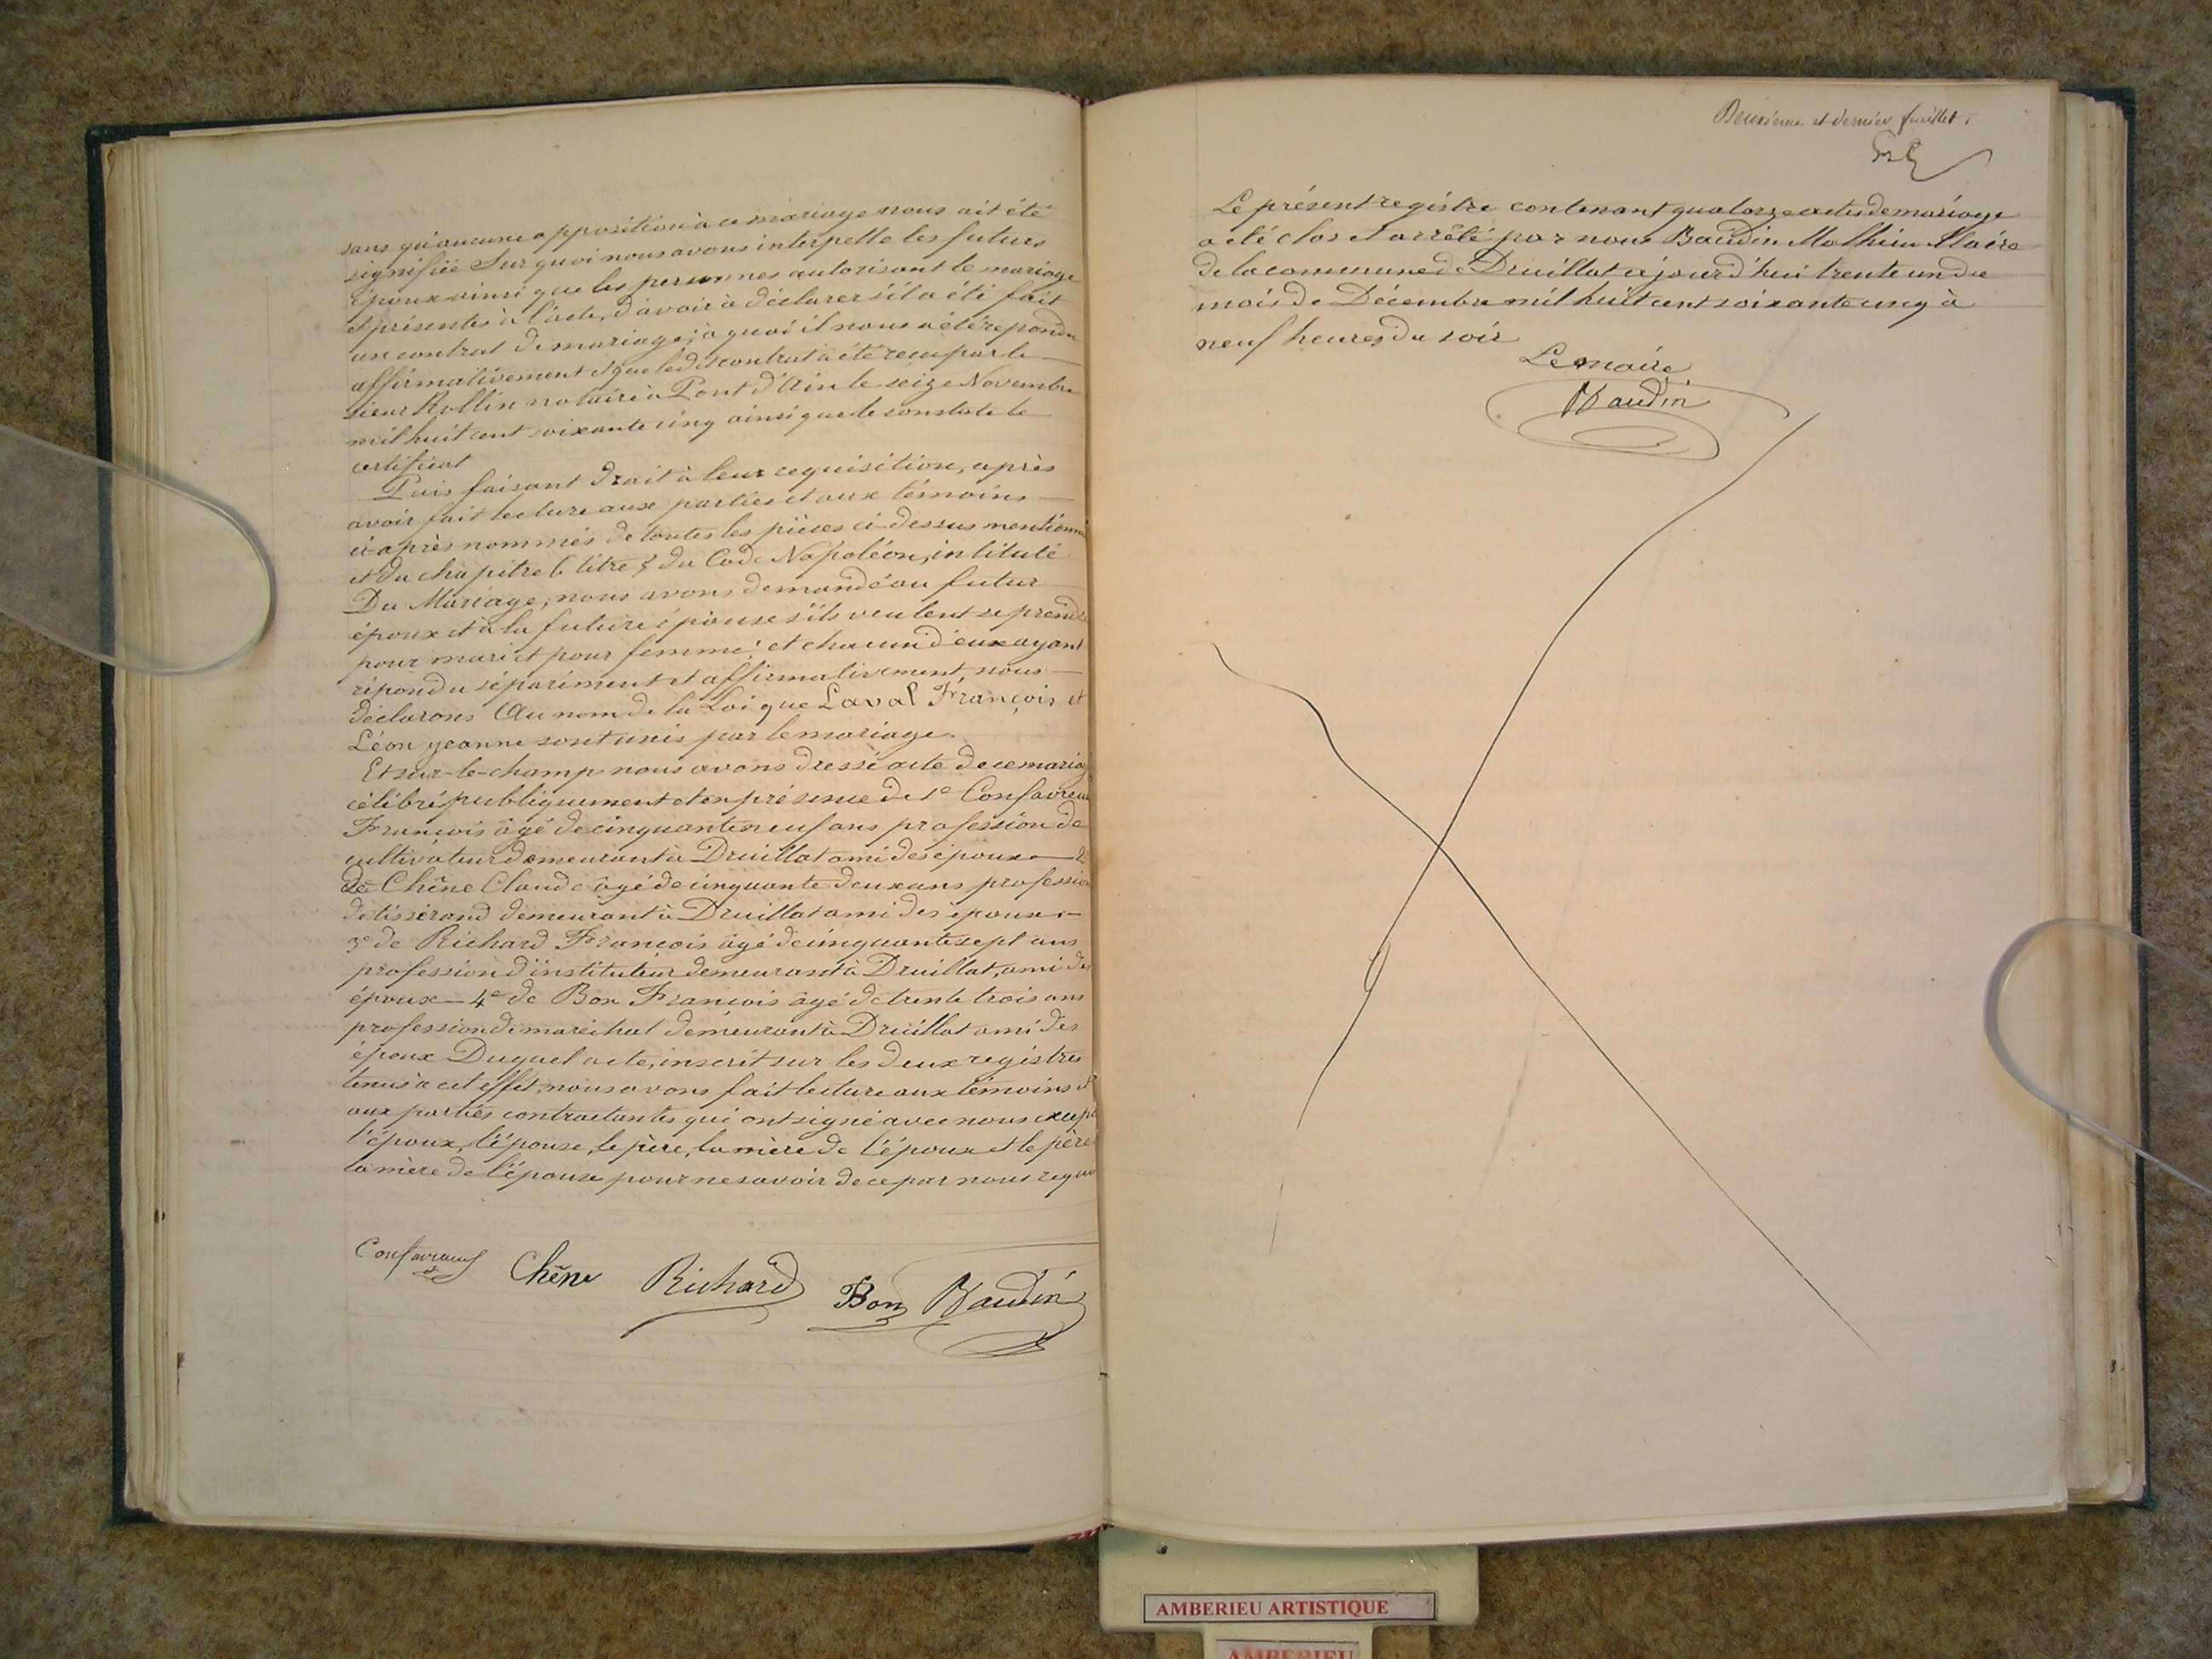 sans qu'aucune opposition à ce mariage nous ait été
signifiée Sur quoi nous avons interpellé les futurs
époux ainsi que les personnes autorisant le mariage
et présentes à l'acte, d'avoir à déclarer s'il a été fait
un contrat de mariage; à quoi il nous a été répondu
affirmativement et que ledit contrat a été reçu par le
sieur Rollin notaire à Pont d'Ain le seize Novembre
mil huit cent soixante cinq ainsi que le constate le
certificat
Puis faisant droit à leur requisition, après
avoir fait lecture aux parties et aux témoins
ci-après nommés de toutes les pièces ci-dessus mentionné
et du chapitre 6 titre 5 du Code Napoléon, intitulé
Du Mariage, nous avons demandé au futur
époux et à la future épouse s'ils veulent se prendre
pour mari et pour femme; et chacun d'eux ayant
répondu séparément et affirmativement, nous
déclarons Au nom de la Loi que Laval François et
Léon jeanne sont unis par le mariage.
Et sur-le-champ nous avons dressé acte de ce mariag
célébré publiquement et en présence de 1e Confavreux
François âgé de cinquante neuf ans profession de
cultivateur demeurant à Druillat ami des époux — 2
de Chêne Claude âgé de cinquante deux ans profession
de tisserand demeurant à Druillat ami des époux —
3e de Richard François âgé de cinquante sept ans
profession d'instituteur demeurant à Druillat, ami des
époux — 4e de Bon François âgé de trente trois ans
profession de maréchal demeurant à Druillat ami des
époux Duquel acte, inscrit sur les deux registres
tenus à cet effet, nous avons fait lecture aux témoins et
aux parties contractantes qui ont signé avec nous excepté
l'époux, l'épouse, le père, la mère de l'époux et le père
la mère de l'épouse pour ne savoir de ce par nous requis
Confavreux Chêne Richard Bon Baudin
Deuxième et dernier feuillet.
Le présent registre contenant quatorze actes de mariage
a été clos et arrêté par nous Baudin Mathieu Maire
de la commune de Druillat cejourd'hui trente un du
mois de Décembre mil huit cent soixante cinq à
neuf heures du soir
Le maire
Baudin
AMBERIEU ARTISTIQUE
AMBERIEU